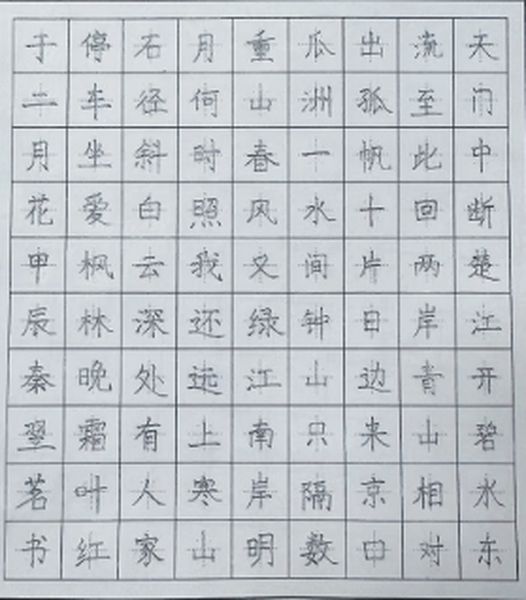 天门中断楚江开碧水东
流至此回两岸青山相对
出孤帆一片日边来京口
瓜洲一水间钟山只隔数
重山春风又绿江南岸明
月何时照我还远上寒山
石径斜白云深处有人家
停车坐爱枫林晚霜叶红
于二月花甲辰秦翌茗书